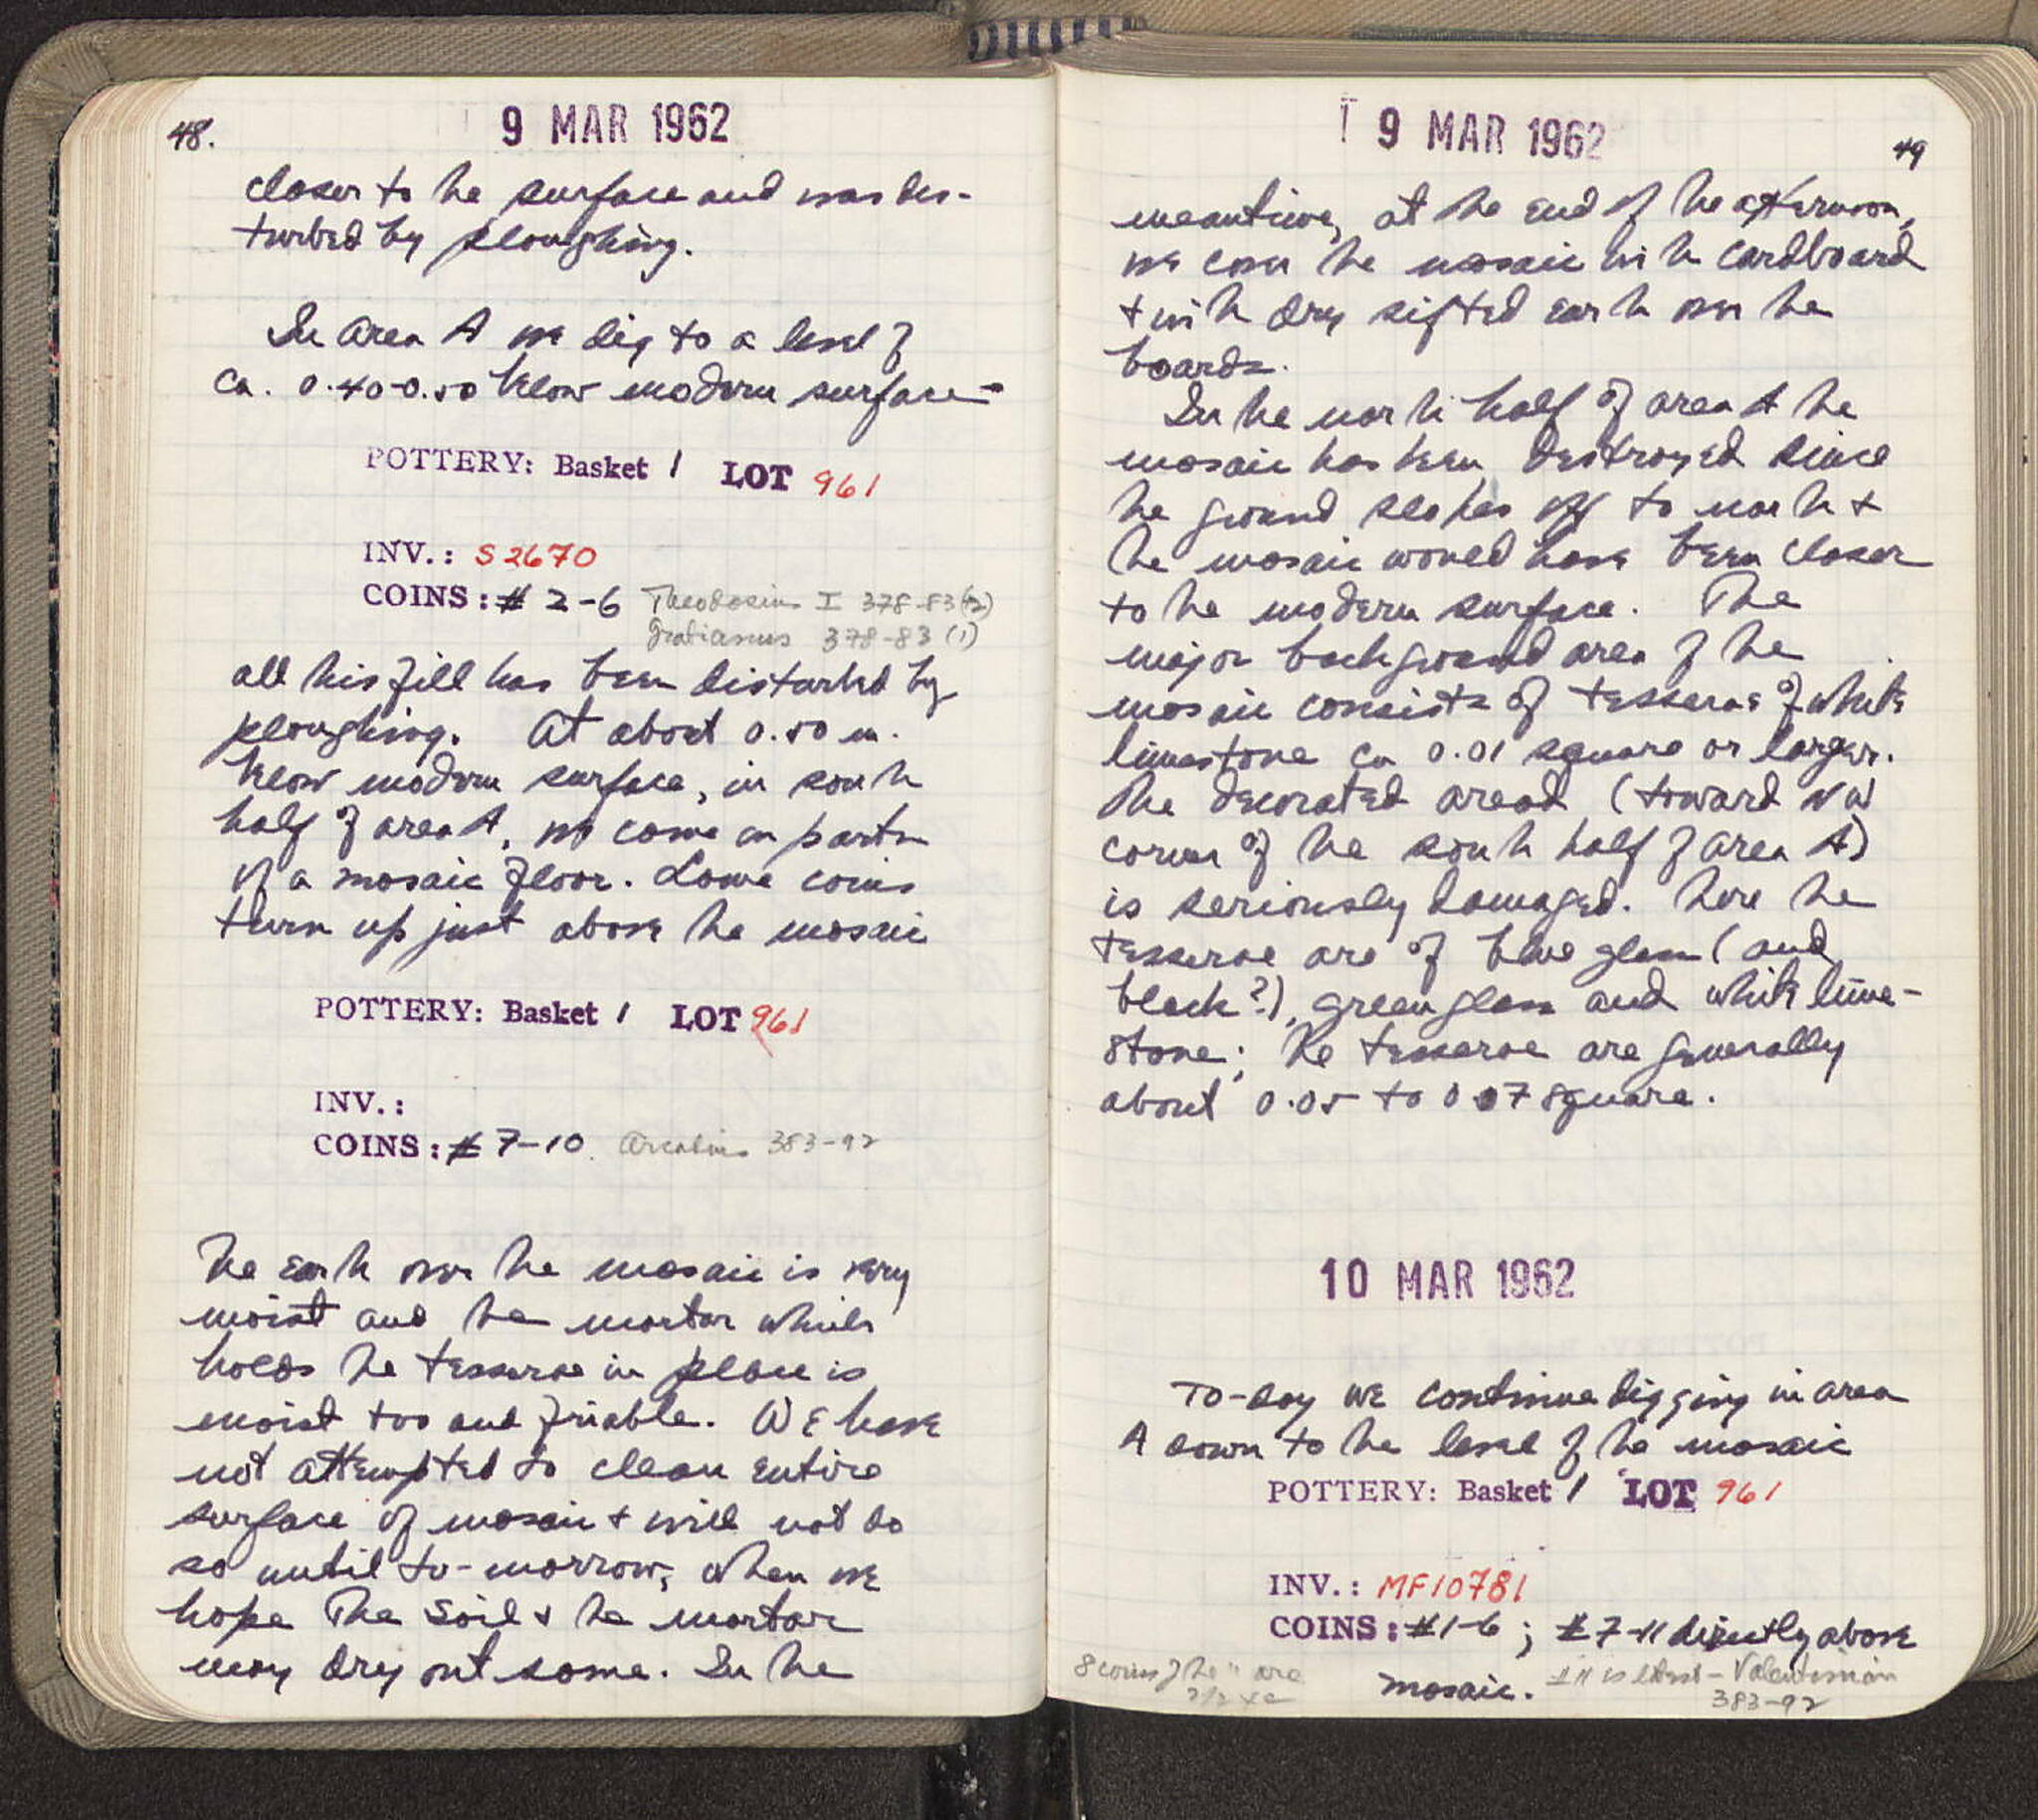 48.
9 MAR 1962
closer to the surface and was dis-
turbed by ploughing.
In area A we dig to a level of
ca. 0.40-0.50 below modern surface -
POTTERY: Basket 1 LOT 961
INV.: S 2670
COINS: # 2-6 Theodosius I 378-83 (2)
Gratianus 378-83 (1)
all this fill has been disturbed by
ploughing. At about 0.50 m.
below modern surface, in south
half of area A, we come on parts
of a mosaic floor. Some coins
turn up just above the mosaic
POTTERY: Basket 1 LOT 961
INV.:
COINS: # 7-10. Arcadius 383-92
The earth over the mosaic is very
moist and the mortar which
holds the tesserae in place is
moist too and friable. We have
not attempted to clean entire
surface of mosaic + will not do
so until to-morrow, when we
hope the soil + the mortar
may dry out some. In the
9 MAR 1962
49
meantime, at the end of the afternoon,
we cover the mosaic with cardboard
+ with dry sifted earth over the
boards.
In the north half of area A the
mosaic has been destroyed since
the ground slopes off to north +
the mosaic would have been closer
to the modern surface. The
major background area of the
mosaic consists of tesserae of white
limestone ca 0.01 square or larger.
The decorated area (toward NW
corner of the south half of area A)
is seriously damaged. Here the
tesserae are of blue glass (and
black?), green glass and white lime-
stone; the tesserae are generally
about 0.05 to 0.07 square.
10 MAR 1962
To-day we continue digging in area
A down to the level of the mosaic
POTTERY: Basket 1 LOT 961
INV.: MF10781
COINS: #1-6; #7-11 directly above
mosaic.
#11 is latest - Valentinian
383-92
8 coins of the 11 are